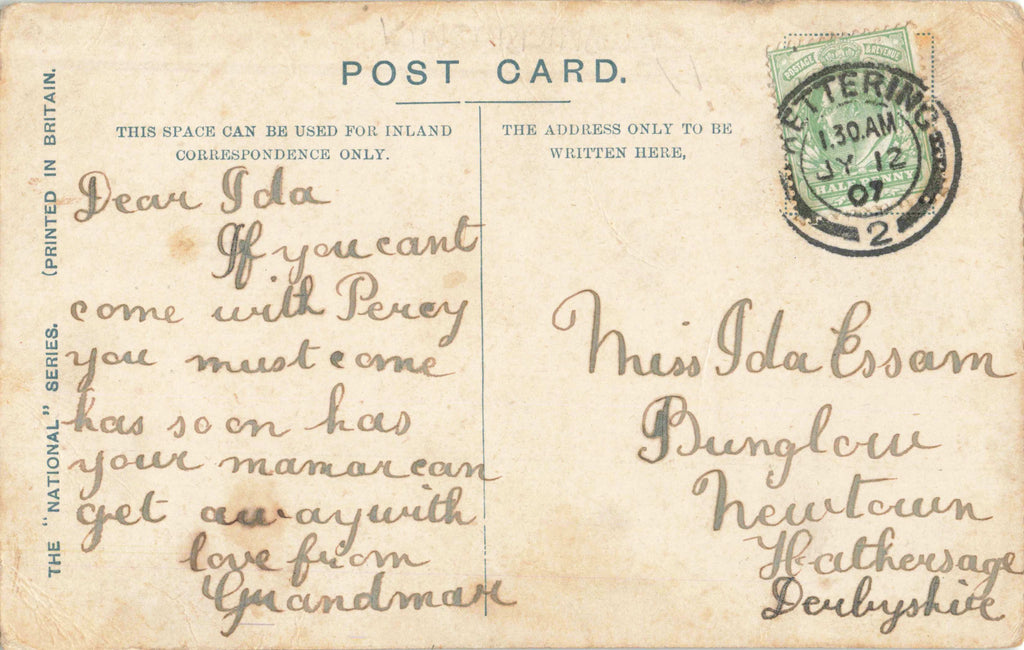 POST CARD.
THIS SPACE CAN BE USED FOR INLAND
CORRESPONDENCE ONLY.
THE ADDRESS ONLY TO BE
WRITTEN HERE,
THE "NATIONAL" SERIES. (PRINTED IN BRITAIN.
Dear Ida
If you cant
come with Percy
you must come
has soon has
your mamar can
get away with
love from
Grandmar
POSTAGE & REVENUE
HALFPENNY
KETTERING
1.30.AM
JY 12
07
2
Miss Ida Essam
Bunglow
Newtown
Hathersage
Derbyshire